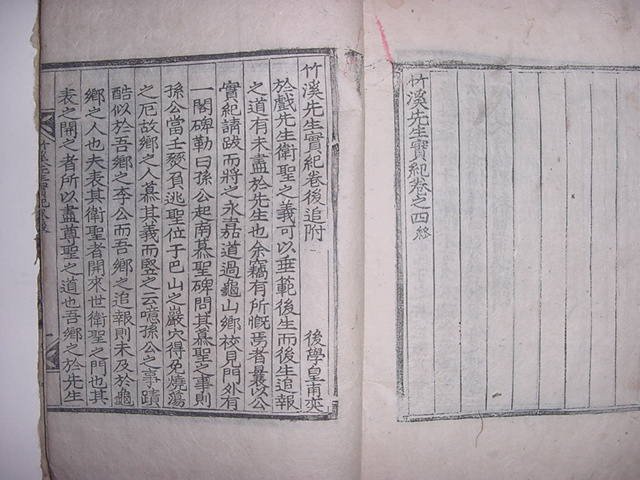 竹溪先生實紀卷之四終
竹溪先生實紀卷後追附
後學皇甫奕
於戲先生衛聖之義可以垂範後生而後生追報
之道有未盡於先生也余竊有所慨焉者曩以公
實紀請跋而將之永嘉道過龜山鄉校見門外有
一閣碑勒曰孫公起南慕聖碑問其慕聖之事則
孫公當壬燹負逃聖位于巴山之巖穴得免燒蕩
之厄故鄉之人慕其義而竪之云噫孫公之事蹟
酷似於吾鄉之李公而吾鄉之追報則未及於龜
鄉之人也夫表其衛聖者開來世衛聖之門也其
表之開之者所以盡尊聖之道也吾鄉之於先生
竹溪先生實紀卷後